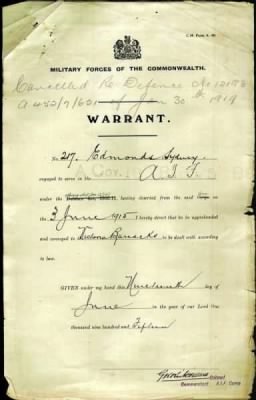 MILITARY FORCES OF THE COMMONWEALTH.
Cancelled Re. Defence
A 452/7/621 of Jan 30th 1919
WARRANT.
No. 217. Edmonds Sydney.
engaged to serve in the A.I.F.
under the having deserted from the said
on the 3 June 1915 I hereby direct that he be apprehended
and conveyed to Victoria Barracks to be dealt with according
to law.
GIVEN under my hand this Nineteenth day of
June in the year of our Lord One
thousand nine hundred and Fifteen
Colonel
Commandant A.I.F. Camp